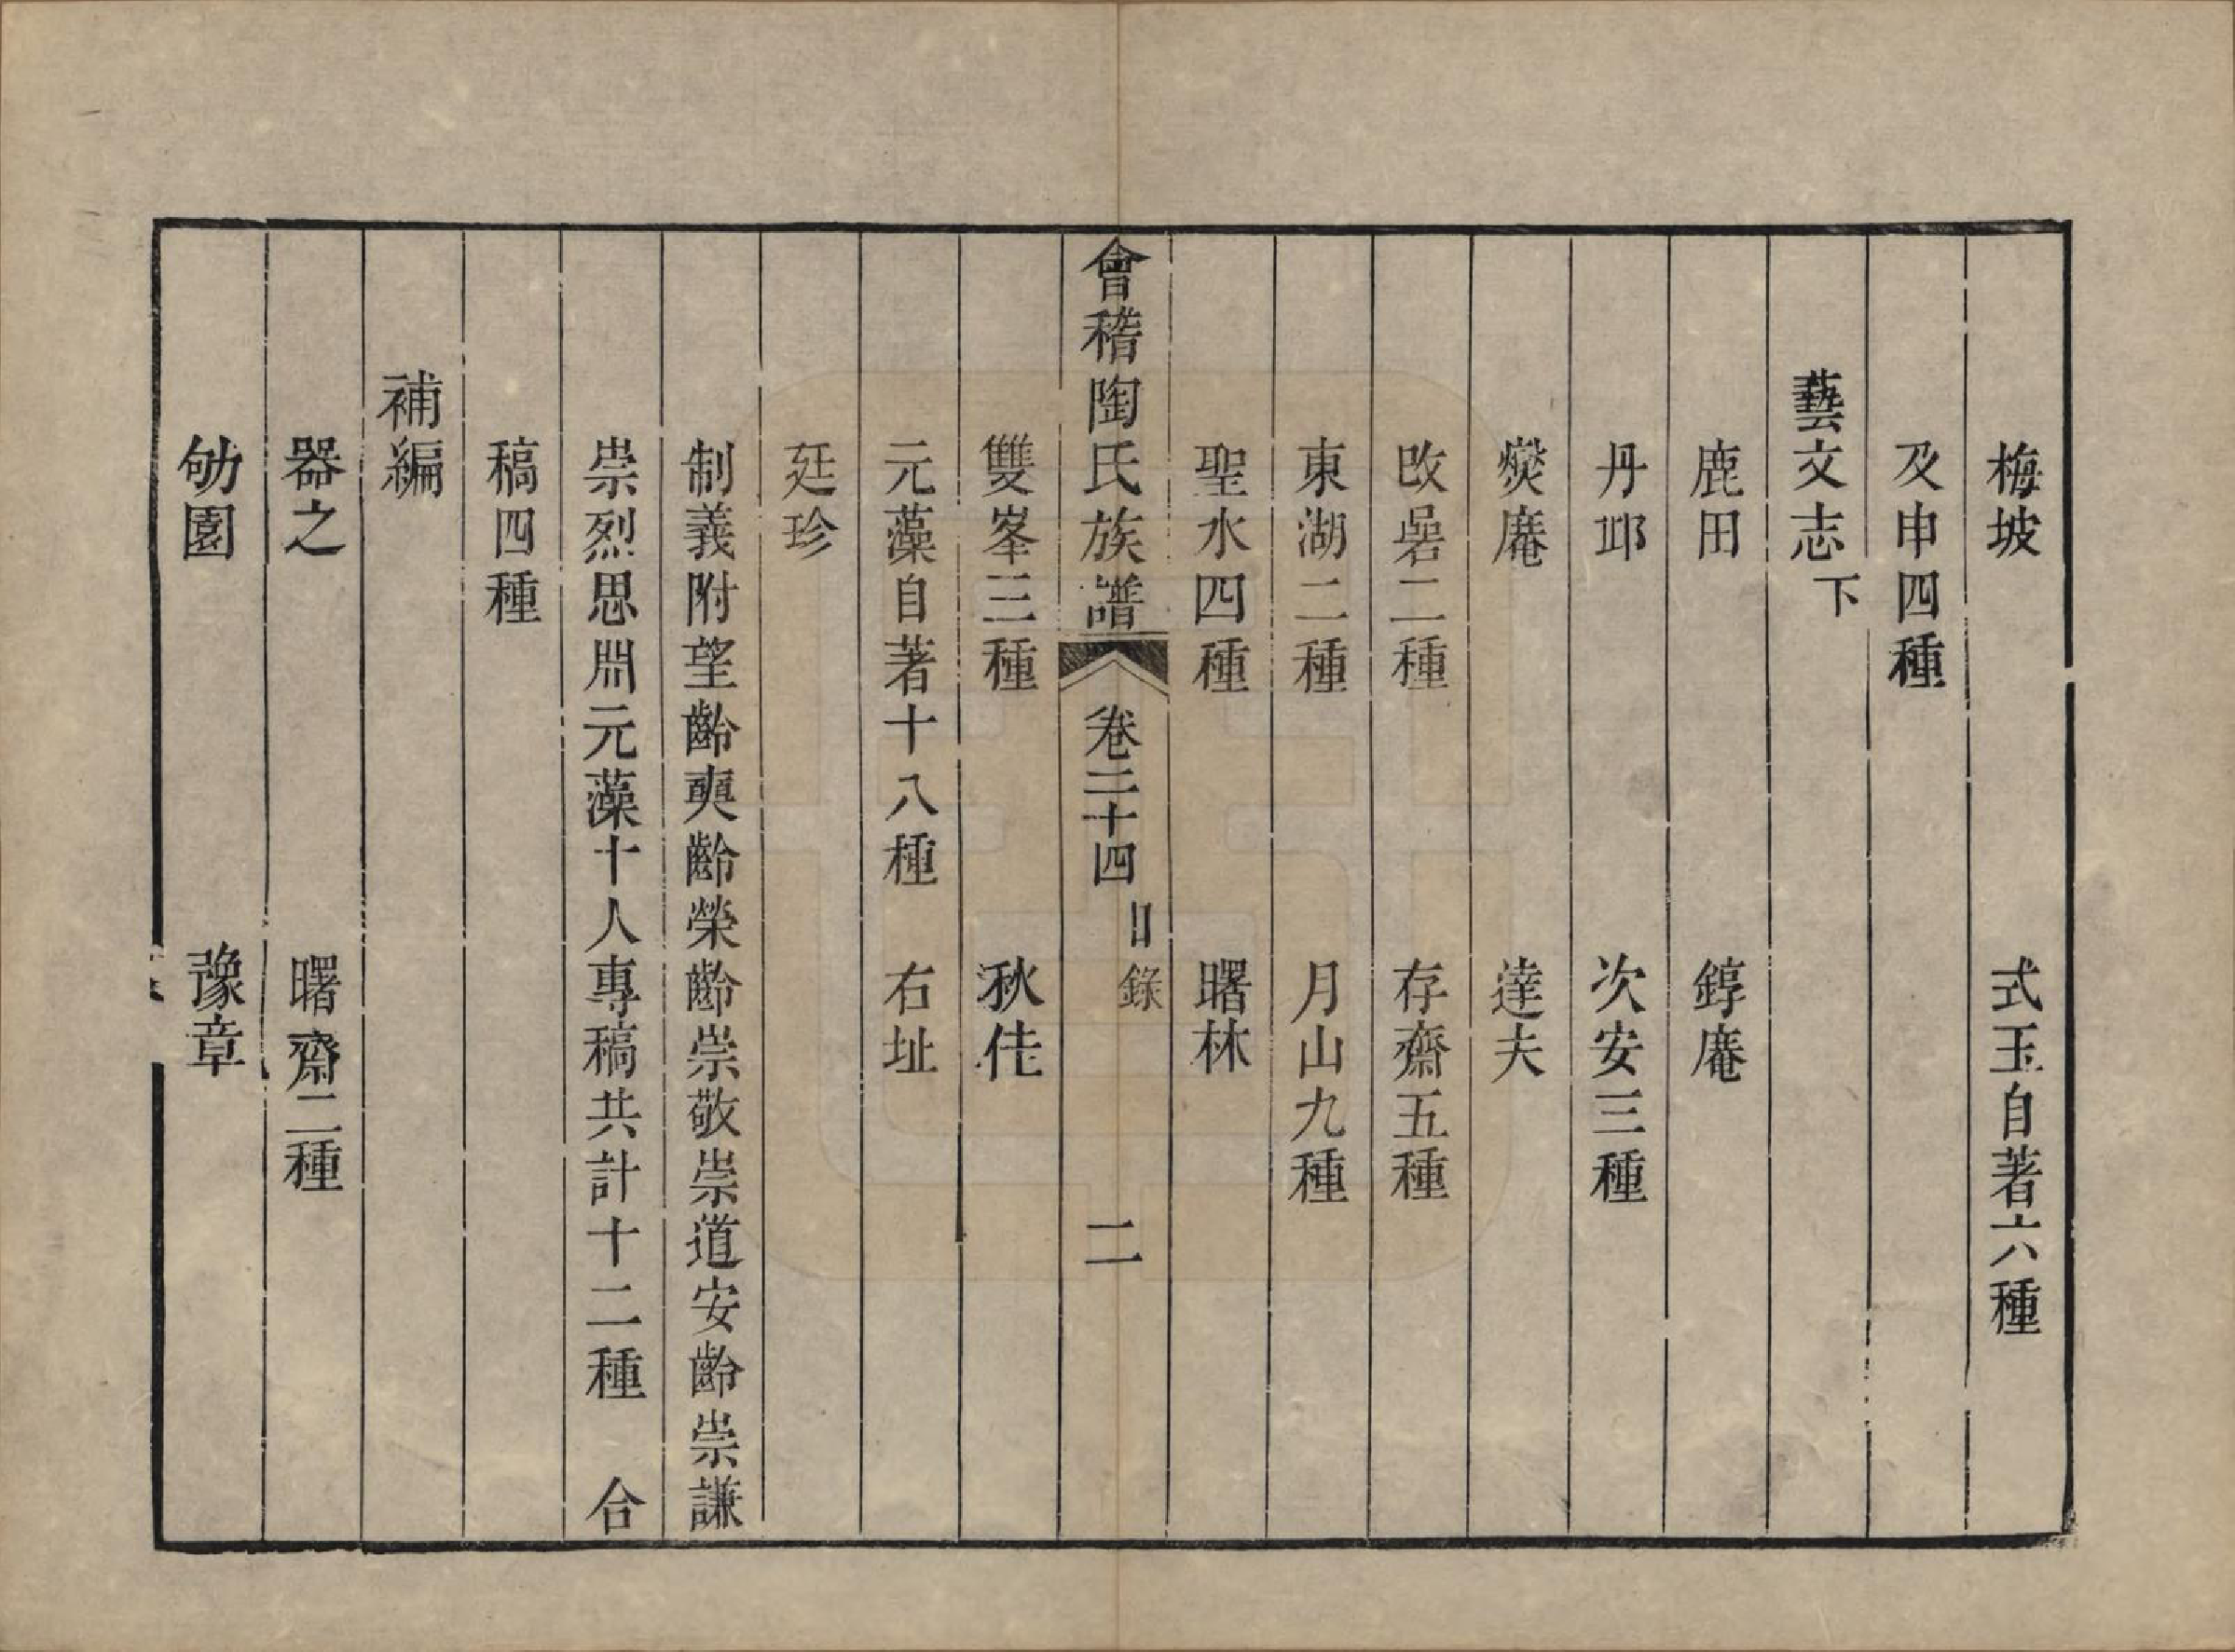 梅坡　式玉自著六種
及申四種
藝文志下
鹿田　錞庵
丹邱　次安三種
燓庵　達夫
改嵒二種　存齋五種
東湖二種　月山九種
聖水四種　曙林
會稽陶氏族譜　卷二十四　目錄　二
雙峯三種　秋佳
元藻自著十八種　右址
廷珍
制義附望齡奭齡榮齡崇敬崇道安齡崇謙
崇烈思淵元藻十人專稿共計十二種　合
稿四種
補編
器之　曙齋二種
劬園　豫章